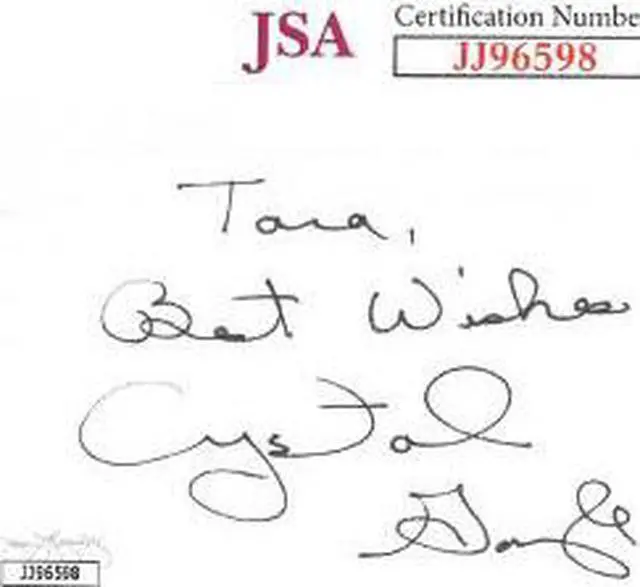 JSA
Certification Numbe
JJ96598
Tara,
Best Wishes
Crystal
Gayle
JJ96598